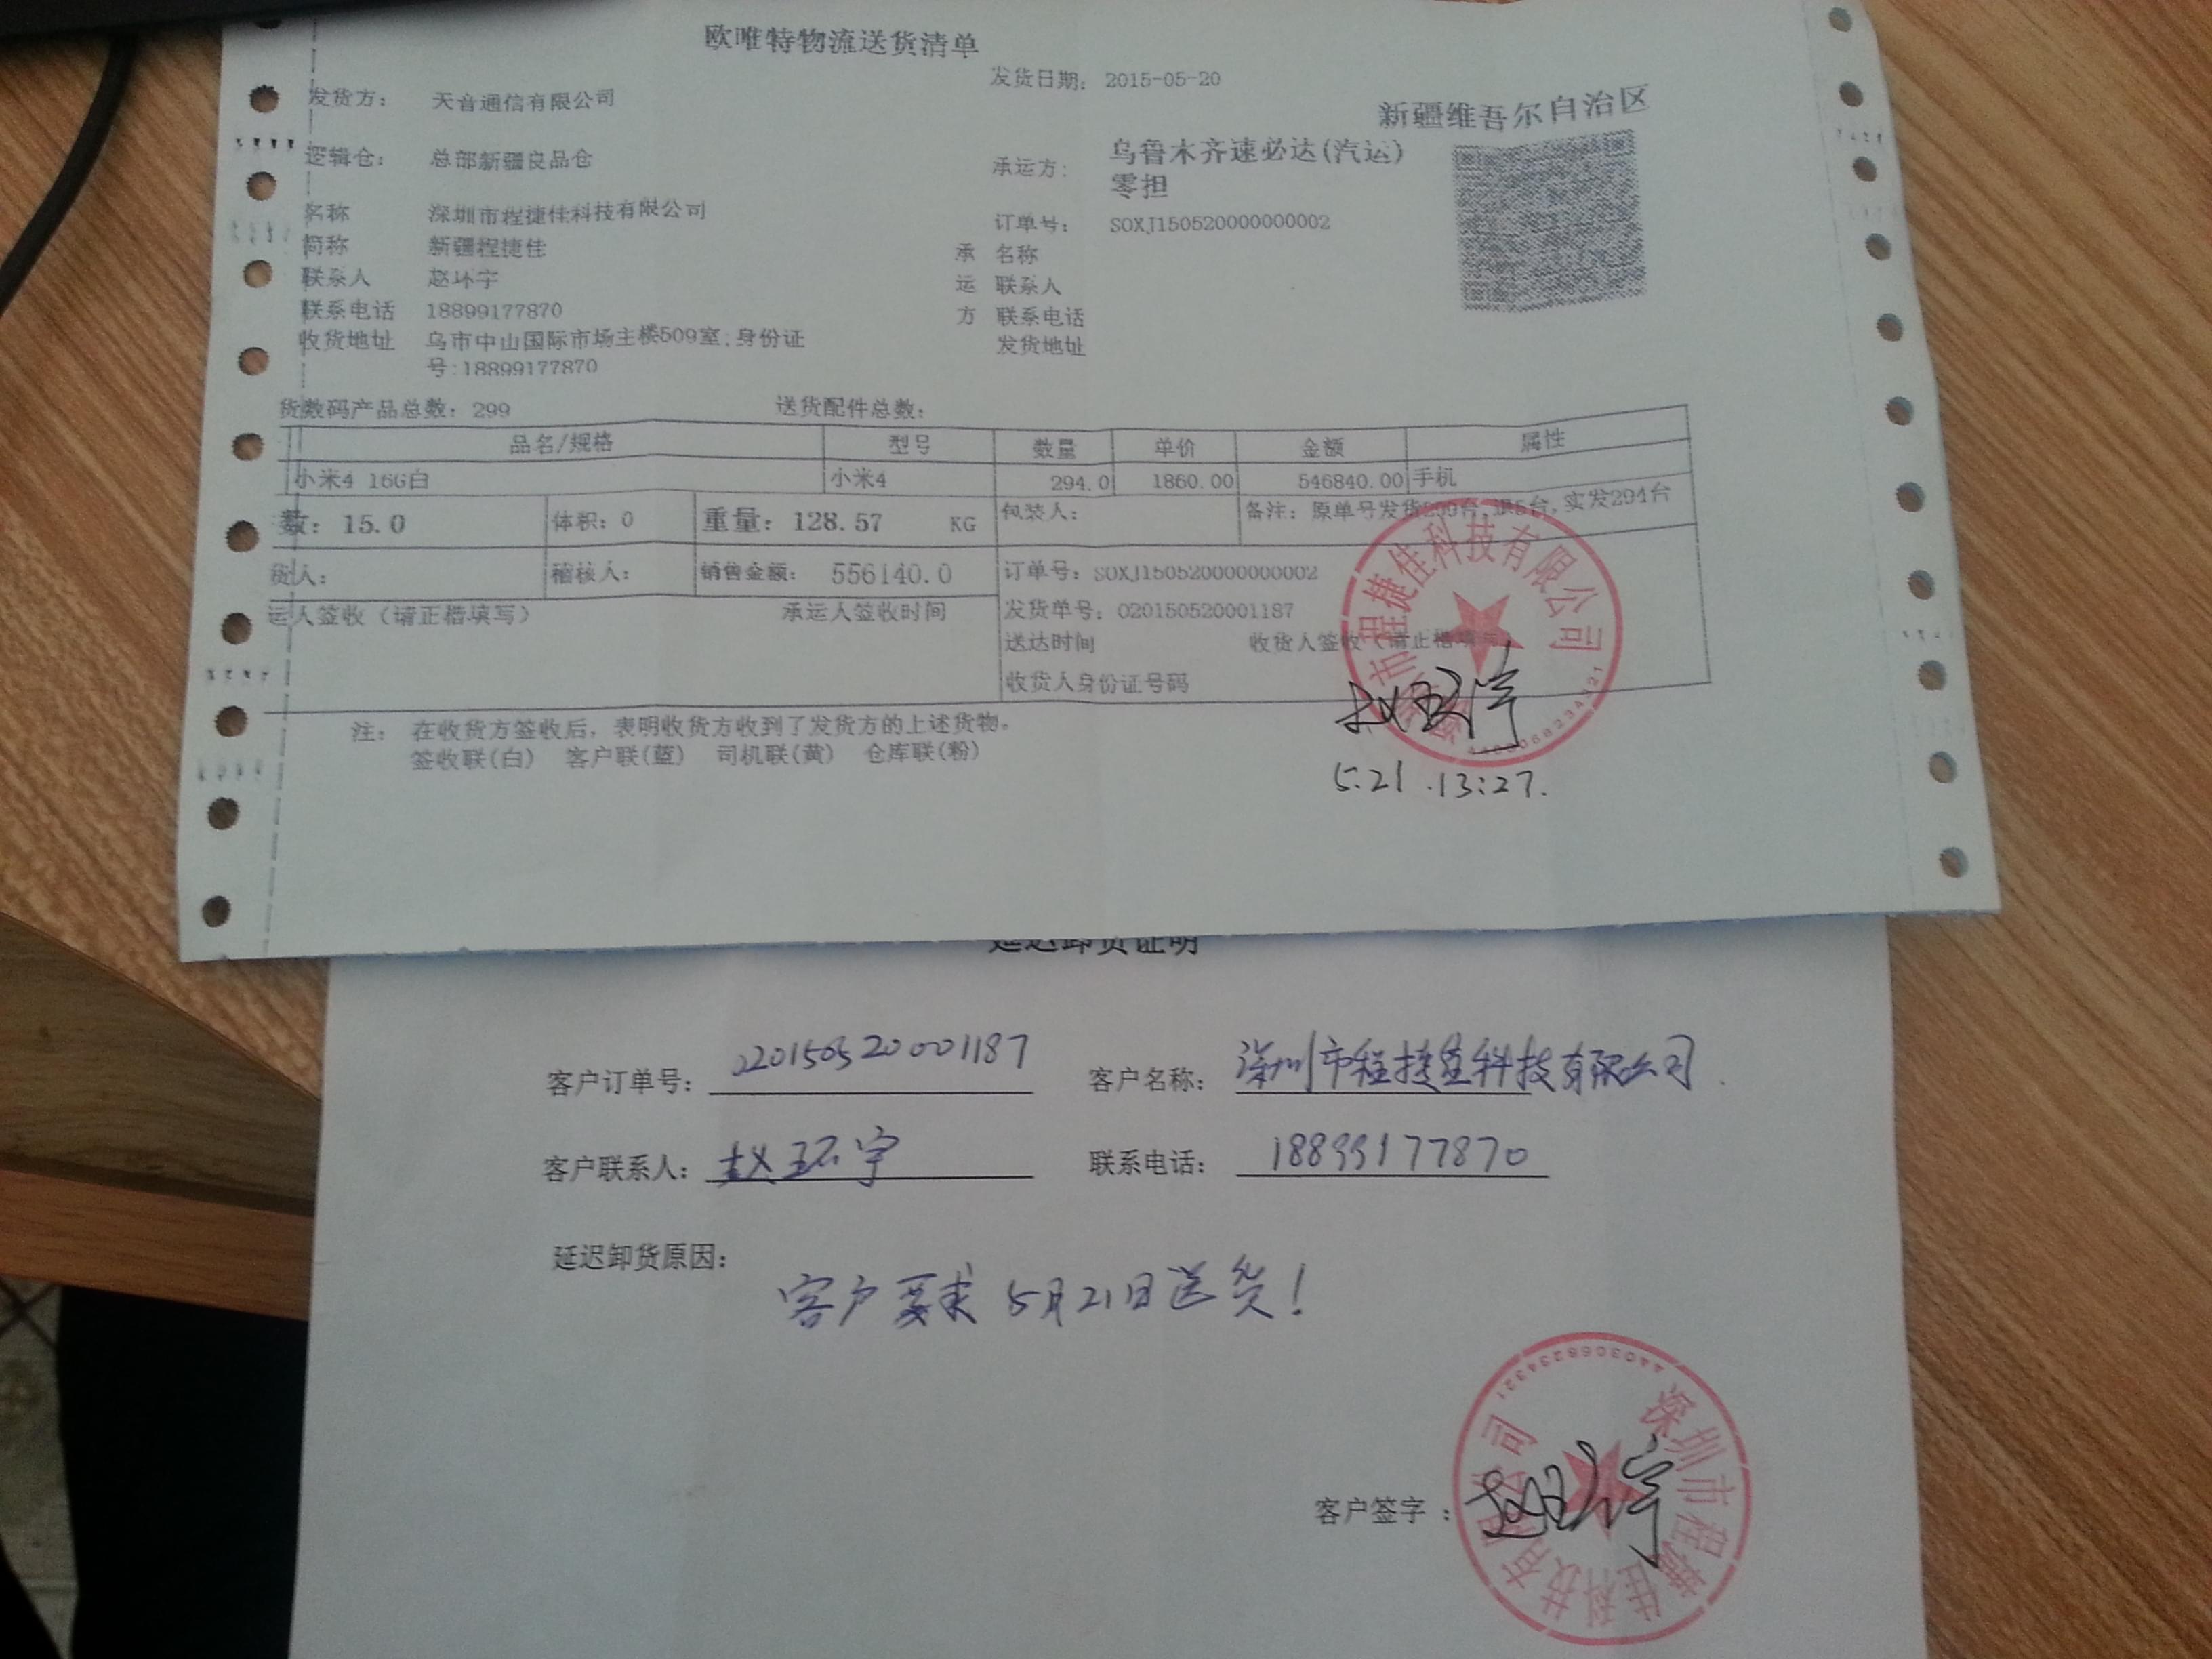 欧唯特物流送货清单
发货日期：2015-05-20
发货方： 天音通信有限公司
新疆维吾尔自治区
逻辑仓： 总部新疆良品仓
承运方： 乌鲁木齐速必达(汽运)
零担
名称 深圳市程捷佳科技有限公司
订单号： SOXJ150520000000002
简称 新疆程捷佳
承 名称
联系人 赵环宇
运 联系人
联系电话 18899177870
方 联系电话
收货地址 乌市中山国际市场主楼509室;身份证
号:18899177870
发货地址
货数码产品总数：299 送货配件总数：
品名/规格 型号 数量 单价 金额 属性
小米4 16G白 小米4 294.0 1860.00 546840.00 手机
数：15.0 体积：0 重量：128.57 KG 包装人： 备注：原单号发货299台,退5台,实发294台
货人： 稽核人： 销售金额： 556140.0 订单号：SOXJ150520000000002
运人签收（请正楷填写） 承运人签收时间 发货单号：020150520001187
送达时间 收货人签收（请正楷填写）
收货人身份证号码
赵环宇
5.21 .13:27.
注： 在收货方签收后，表明收货方收到了发货方的上述货物。
签收联(白) 客户联(蓝) 司机联(黄) 仓库联(粉)
市程捷佳科技有限公司
延迟卸货证明
客户订单号： 020150520001187 客户名称： 深圳市程捷佳科技有限公司.
客户联系人： 赵环宇 联系电话： 18899177870
延迟卸货原因：
客户要求5月21日送货！
客户签字： 赵环宇
深圳市程捷佳科技有限公司
4403068234321